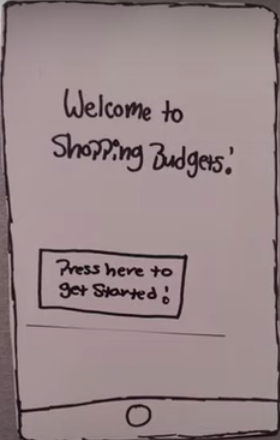 Welcome to
Shopping Budgets!
Press here to
get Started!